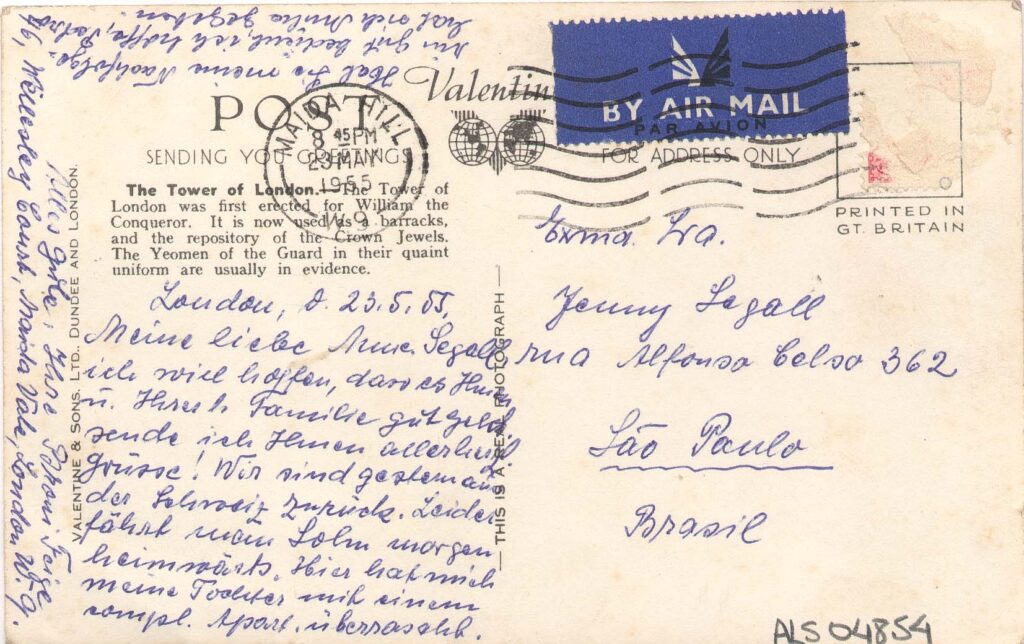 Hat Sie meine Nachfolge-
rin gut bedient, ich hoffe, Petra
hat sich Mühe gegeben.
POST
Valentin
SENDING YOU GREETINGS
MAIDA HILL
8 45 PM
23 MAY
1955
W.9
BY AIR MAIL
PAR AVION
FOR ADDRESS ONLY
PRINTED IN
GT. BRITAIN
The Tower of London.—The Tower of
London was first erected for William the
Conqueror. It is now used as a barracks,
and the repository of the Crown Jewels.
The Yeomen of the Guard in their quaint
uniform are usually in evidence.
London, d. 23.5.55,
Meine liebe Segall
ich will hoffen, dass es Ihnen
u. Ihrer Familie gut geht
sende ich Ihnen allerherzl.
Grüsse! Wir sind gestern aus
der Schweiz zurück. Leider
fährt mein Sohn morgen
heimwärts. Hier hat mich
meine Tochter mit einem
compl. Apart. überrascht.
Alles Gute, Ihre Feige
76, Wellesley Court, Maida Vale, London W.9.
VALENTINE & SONS, LTD., DUNDEE AND LONDON.
THIS IS A REAL PHOTOGRAPH
Exma. Sra.
Jenny Segall
rua Alfonso Celso 362
São Paulo
Brasil
ALS 04854